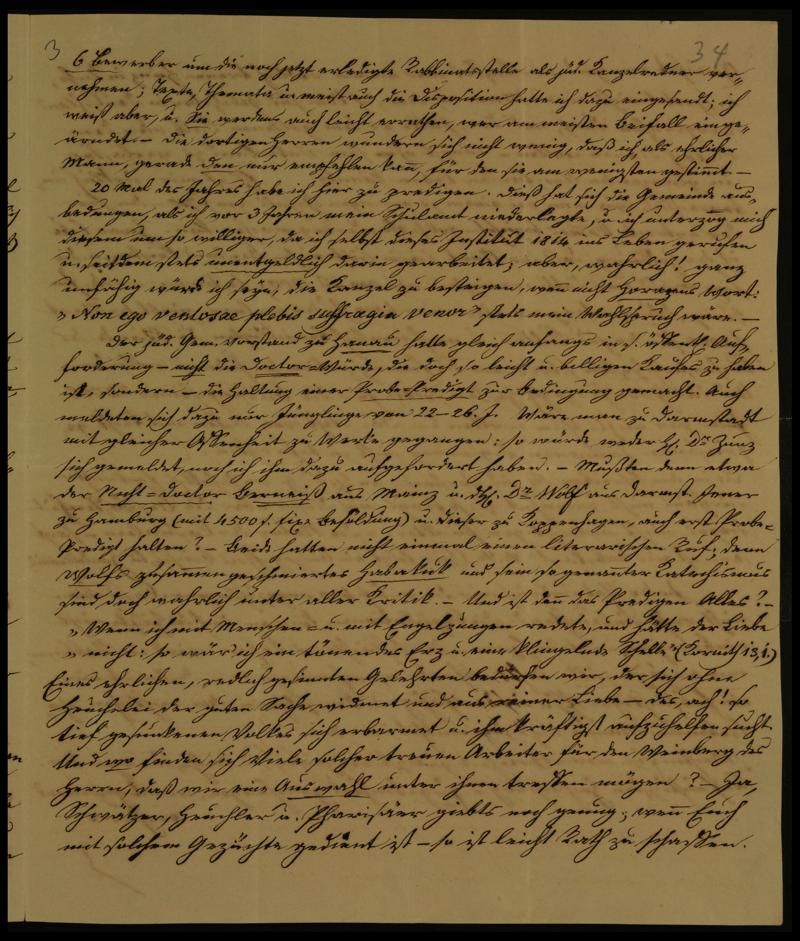 3 34
6 Bewerber um die noch jetzt erledigte Rabbinatsstelle als jüd. Kanzelredner ver-
nehmen; Texte, Themata u. meist auch die Disposition hatte ich dazu eingesandt; ich
weiß aber, u. Sie werdens auch leicht errathen, wer am meisten Beifall einge-
ärndet. – Die dortigen Herren wundern sich nicht wenig, daß ich, als ehrlicher
Mann, gerade den nur empfehlen kann, für den sie am wenigsten gestimmt. –
20 Mal des Jahres habe ich hier zu predigen. Dieß hat sich die Gemeinde aus-
bedungen, als ich vor 3 Jahren mein Schulamt niederlegte, u. ich unterzog mich
diesem um so williger, da ich selbst dieses Institut 1814 ins Leben gerufen
u. seitdem stets unentgeldlich darin gearbeitet; aber, wahrlich! ganz
unfähig würde ich seyn, die Kanzel zu besteigen, wenn nicht Horazens Wort:
„Non ego ventosae plebis suffragia venor" stets mein Wahlspruch wäre. –
Der jüd. Gem. Vorstand zu Hanau hatte gleich anfangs in s. öffentl. Auf-
forderung – nicht die Doctor-Würde, die doch so leicht u. billigen Kaufes zu haben
ist, sondern – die Haltung einer Probe-Predigt zur Bedingung gemacht. Auch
meldeten sich dazu nur Jünglinge von 22–26 J. Wäre man zu Darmstadt
mit gleicher Offenheit zu Werke gegangen: so würde weder H. Dr Zunz
sich gemeldet, noch ich ihn dazu aufgefordert haben. – Mußten denn etwa
der Nicht-Doctor Berneiß aus Mainz u. d. H. Dr Wolf aus Darmst. Jener
zu Hamburg (mit 4500 f. fixe Besoldung) u. dieser zu Koppenhagen, auch erst Probe-
Predigt halten? – Beide hatten nicht einmal einen literarischen Ruf; denn
Wolfs zusammengeschmiertes Habakuk und sein so genannter Katechismus
sind doch wahrlich unter aller Kritik. – Und ist denn das Predigen Alles? –
„Wenn ich mit Menschen- u. mit Engelzungen redete, und hätte der Liebe
„nicht: so wär' ich ein tönendes Erz u. eine klingelnde Schelle" (Korinth 13,1.)
Eines ehrlichen, redlich gesinnten Gelehrten bedürfen wir, der sich ohne
Heuchelei der guten Sache widmet und aus reiner Liebe – des, ach! so
tief gesunkenen Volkes sich erbarmet u. ihm kräftigst aufzuhelfen sucht.
Und wo finden sich Viele solcher treuen Arbeiter für den Weinberg des
Herrn, daß wir eine Auswahl unter ihnen treffen mögen? – Ja,
Schwätzer, Heuchler u. Pharisäer giebts noch genug; wenn Euch
mit solchem Gezüchte gedient ist – so ist leicht Rath zu schaffen.